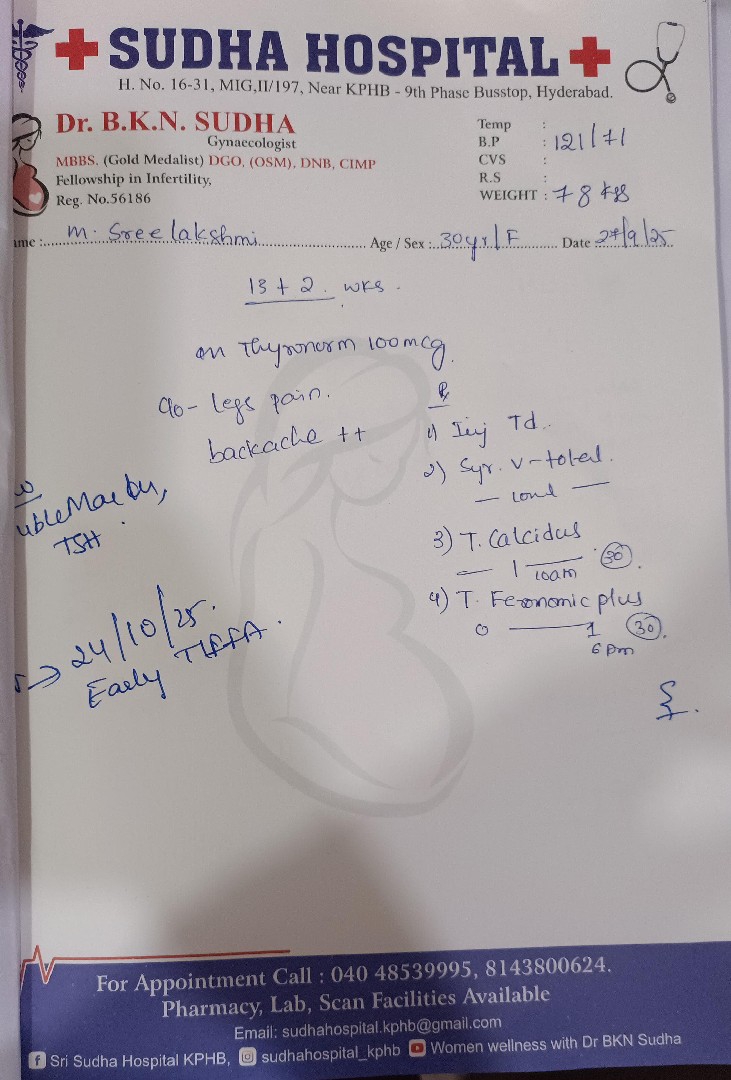 SUDHA HOSPITAL
H. No. 16-31, MIG,II/197, Near KPHB - 9th Phase Busstop, Hyderabad.
Dr. B.K.N. SUDHA
Gynaecologist
MBBS. (Gold Medalist) DGO, (OSM), DNB, CIMP
Fellowship in Infertility,
Reg. No.56186
Temp :
B.P : 121/71
CVS :
R.S :
WEIGHT : 78 kgs
ame : M. Sree lakshmi Age / Sex : 30yr/F Date 27/9/25
13 + 2 wks.
on Thyronorm 100mcg.
c/o - legs pain.
backache ++
R
1) Inj Td.
2) Syr.
3) T.
1 10am 30
4) T. plus
0 1 30
6 pm
uble Marker,
TSH
24/10/25.
Early TIFFA.
For Appointment Call : 040 48539995, 8143800624.
Pharmacy, Lab, Scan Facilities Available
Email: sudhahospital.kphb@gmail.com
Sri Sudha Hospital KPHB, sudhahospital_kphb Women wellness with Dr BKN Sudha